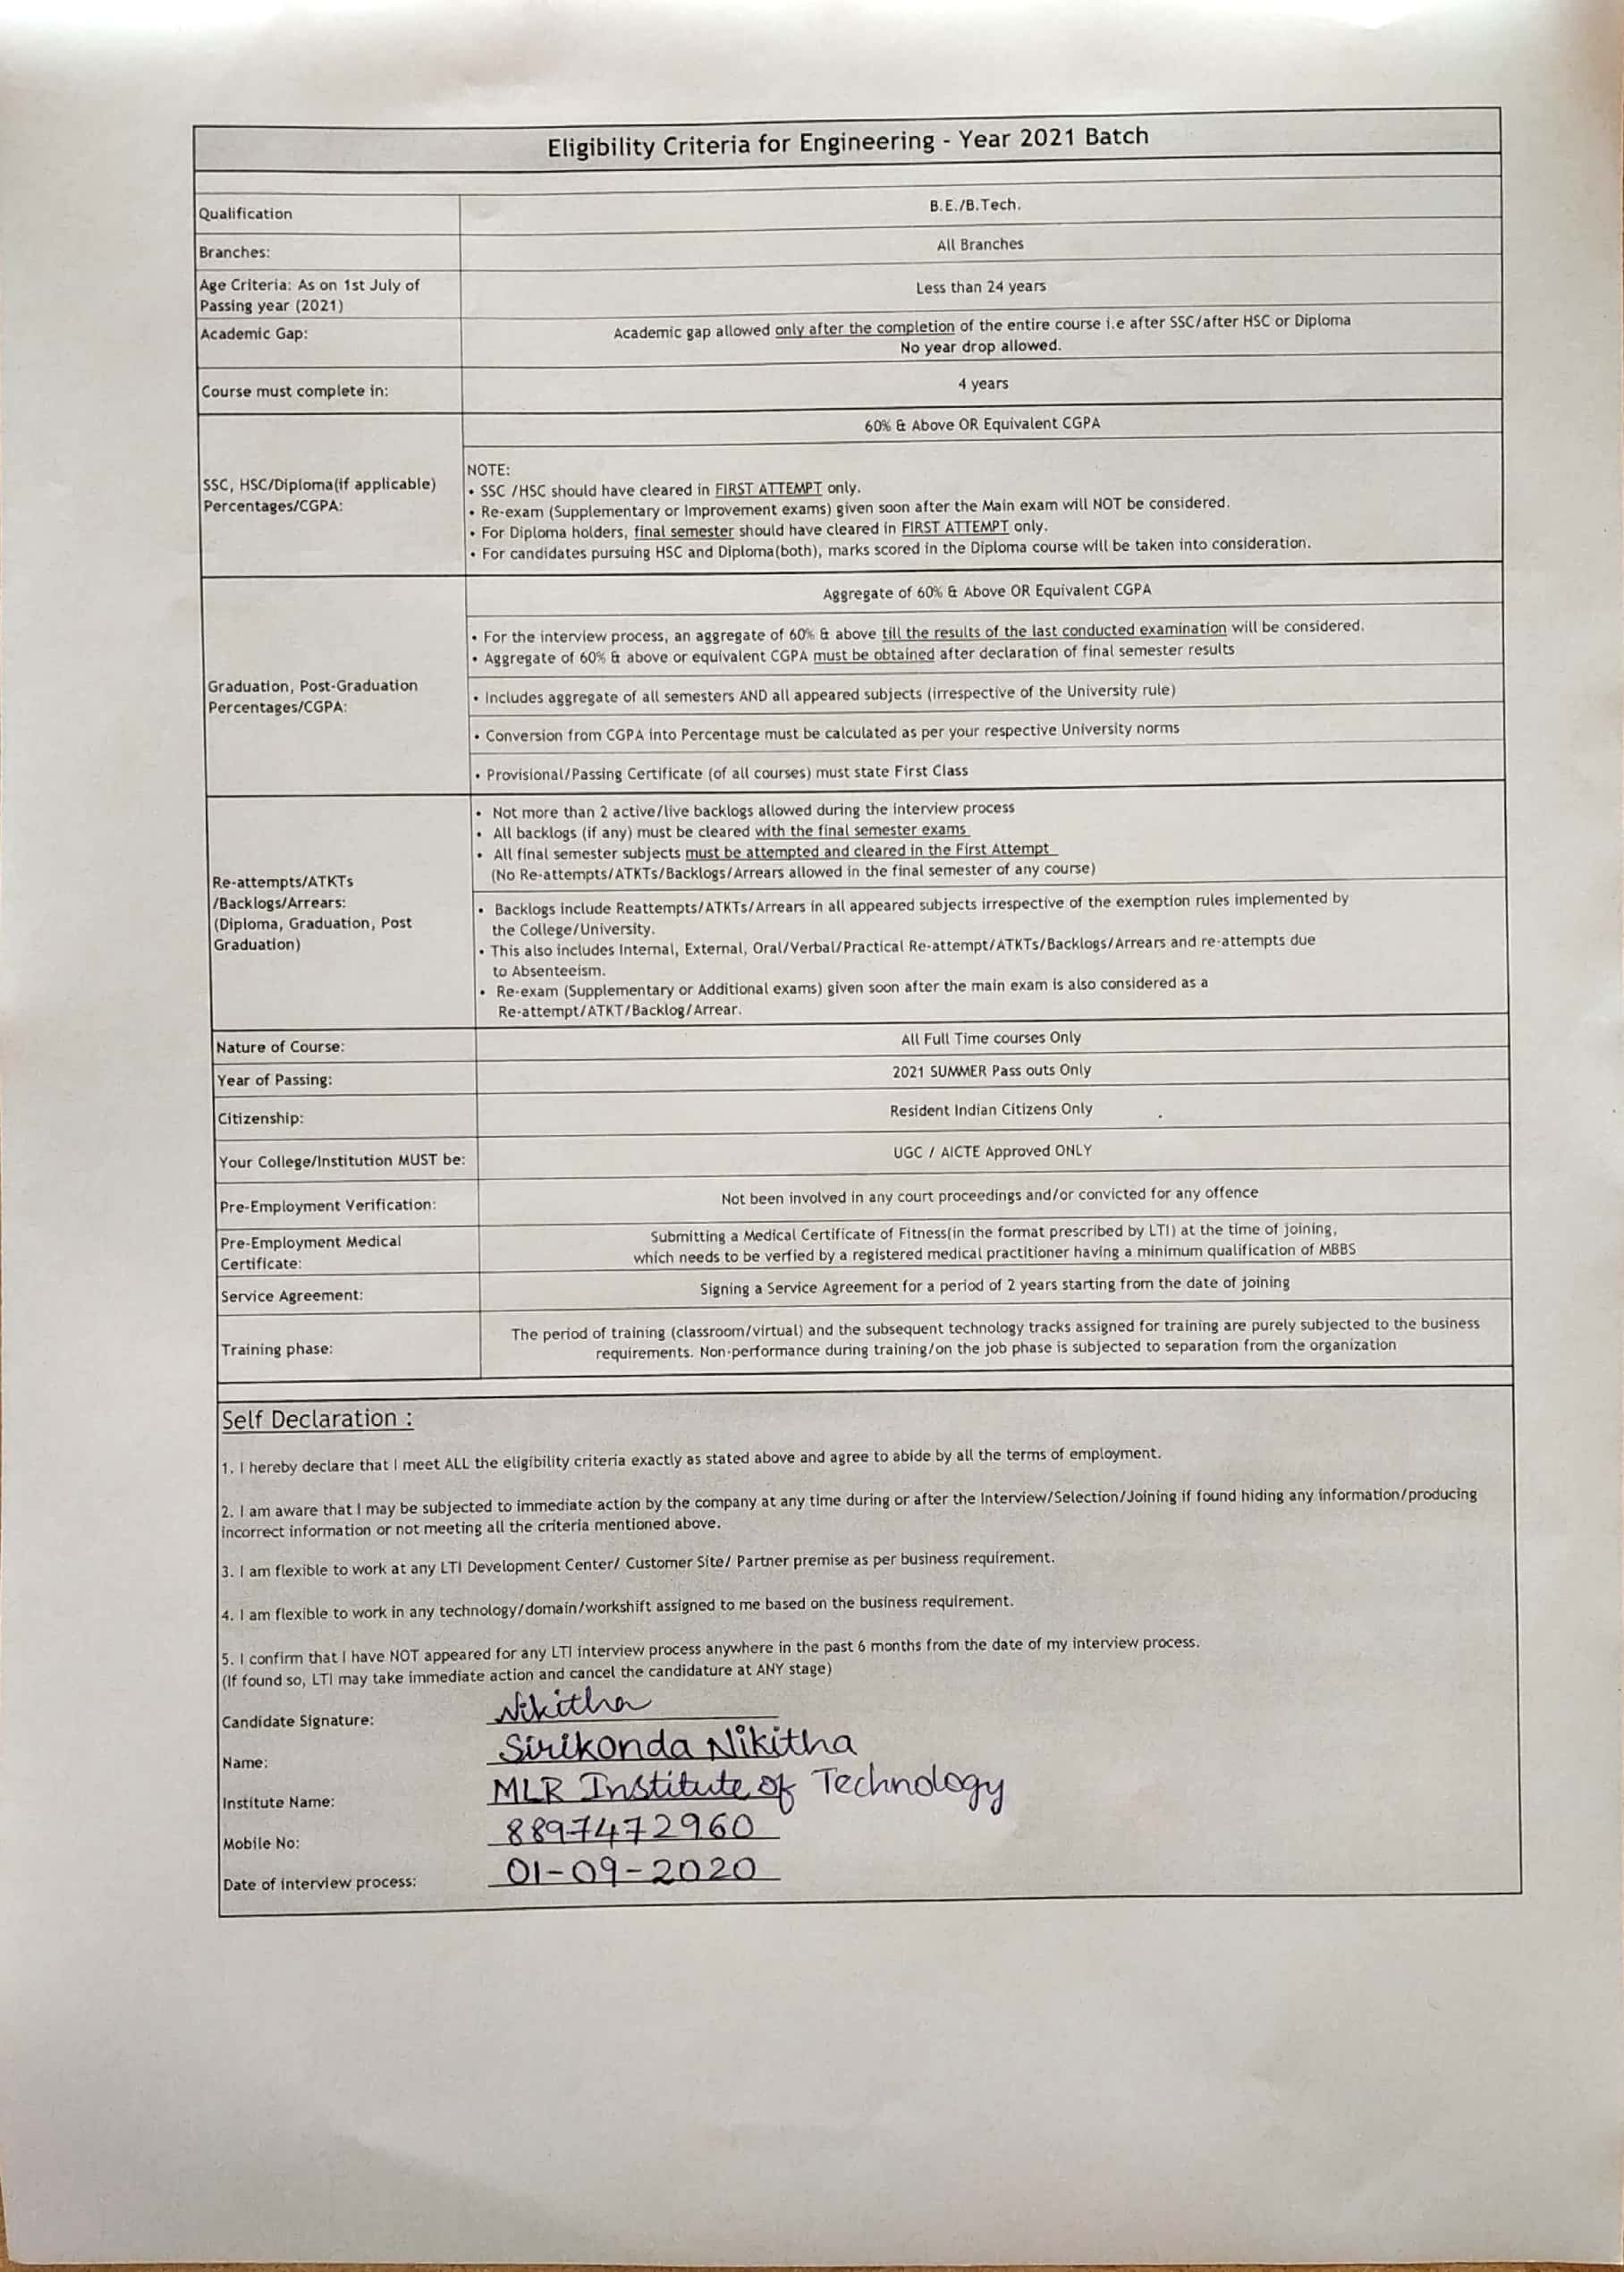 Eligibility Criteria for Engineering - Year 2021 Batch
Qualification
B.E./B.Tech.
Branches:
All Branches
Age Criteria: As on 1st July of
Passing year (2021)
Less than 24 years
Academic Gap:
Academic gap allowed only after the completion of the entire course i.e after SSC/after HSC or Diploma
No year drop allowed.
Course must complete in:
4 years
SSC, HSC/Diploma(if applicable)
Percentages/CGPA:
60% & Above OR Equivalent CGPA
NOTE:
• SSC /HSC should have cleared in FIRST ATTEMPT only.
• Re-exam (Supplementary or Improvement exams) given soon after the Main exam will NOT be considered.
• For Diploma holders, final semester should have cleared in FIRST ATTEMPT only.
• For candidates pursuing HSC and Diploma(both), marks scored in the Diploma course will be taken into consideration.
Graduation, Post-Graduation
Percentages/CGPA:
Aggregate of 60% & Above OR Equivalent CGPA
• For the interview process, an aggregate of 60% & above till the results of the last conducted examination will be considered.
• Aggregate of 60% & above or equivalent CGPA must be obtained after declaration of final semester results
• Includes aggregate of all semesters AND all appeared subjects (irrespective of the University rule)
• Conversion from CGPA into Percentage must be calculated as per your respective University norms
• Provisional/Passing Certificate (of all courses) must state First Class
Re-attempts/ATKTs
/Backlogs/Arrears:
(Diploma, Graduation, Post
Graduation)
• Not more than 2 active/live backlogs allowed during the interview process
• All backlogs (if any) must be cleared with the final semester exams
• All final semester subjects must be attempted and cleared in the First Attempt
(No Re-attempts/ATKTs/Backlogs/Arrears allowed in the final semester of any course)
• Backlogs include Reattempts/ATKTs/Arrears in all appeared subjects irrespective of the exemption rules implemented by
the College/University.
• This also includes Internal, External, Oral/Verbal/Practical Re-attempt/ATKTs/Backlogs/Arrears and re-attempts due
to Absenteeism.
• Re-exam (Supplementary or Additional exams) given soon after the main exam is also considered as a
Re-attempt/ATKT/Backlog/Arrear.
Nature of Course:
All Full Time courses Only
Year of Passing:
2021 SUMMER Pass outs Only
Citizenship:
Resident Indian Citizens Only
Your College/Institution MUST be:
UGC / AICTE Approved ONLY
Pre-Employment Verification:
Not been involved in any court proceedings and/or convicted for any offence
Pre-Employment Medical
Certificate:
Submitting a Medical Certificate of Fitness(in the format prescribed by LTI) at the time of joining,
which needs to be verfied by a registered medical practitioner having a minimum qualification of MBBS
Service Agreement:
Signing a Service Agreement for a period of 2 years starting from the date of joining
Training phase:
The period of training (classroom/virtual) and the subsequent technology tracks assigned for training are purely subjected to the business
requirements. Non-performance during training/on the job phase is subjected to separation from the organization
Self Declaration :
1. I hereby declare that I meet ALL the eligibility criteria exactly as stated above and agree to abide by all the terms of employment.
2. I am aware that I may be subjected to immediate action by the company at any time during or after the Interview/Selection/Joining if found hiding any information/producing
incorrect information or not meeting all the criteria mentioned above.
3. I am flexible to work at any LTI Development Center/ Customer Site/ Partner premise as per business requirement.
4. I am flexible to work in any technology/domain/workshift assigned to me based on the business requirement.
5. I confirm that I have NOT appeared for any LTI interview process anywhere in the past 6 months from the date of my interview process.
(If found so, LTI may take immediate action and cancel the candidature at ANY stage)
Candidate Signature: Nikitha
Name: Sirikonda Nikitha
Institute Name: MLR Institute of Technology
Mobile No: 8897472960
Date of interview process: 01-09-2020